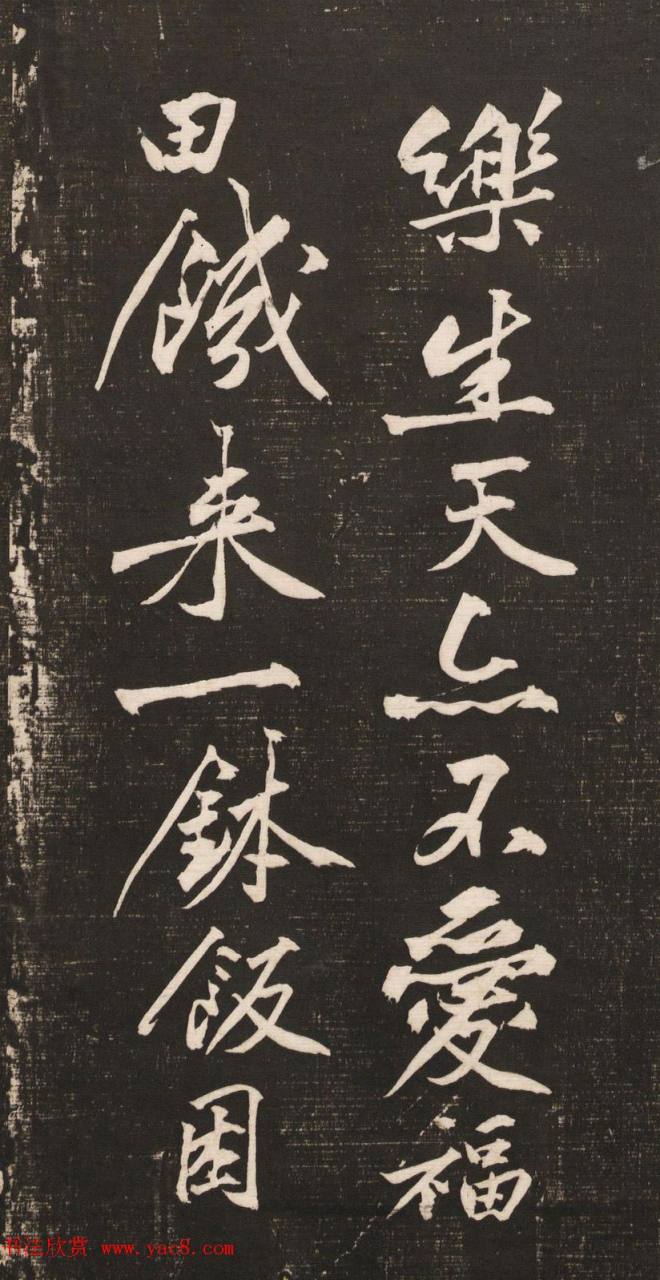 樂生天亦不愛福
田饑来一鉢飯困
书法欣赏 www.yac8.com